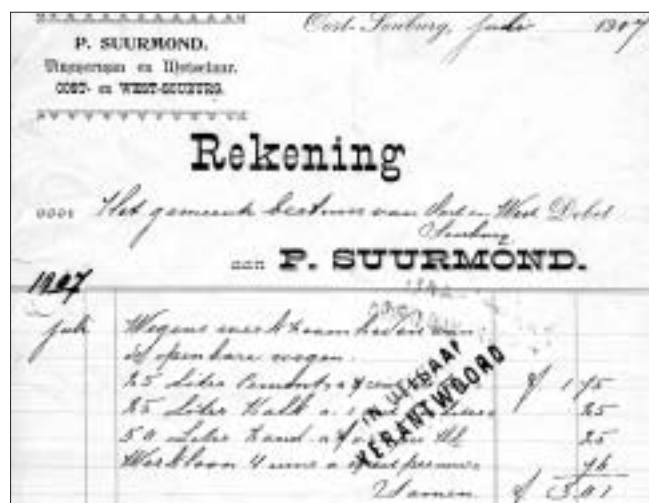 P. SUURMOND.
Timmerman en Metselaar.
OOST- en WEST-SOUBURG.
Oost-Souburg, Juli 1907
Rekening
voor Het gemeente bestuur van Oost en West Debet
Souburg
aan P. SUURMOND.
1907
juli Wegens werkzaamheden aan
de openbare wegen.
25 Liter Cement a f 1 75
25 Liter Kalk a 25
50 Liter Zand a 25
Werkloon 4 uren a 76
Samen f 3 01
IN UITGAAF
VERANTWOORD